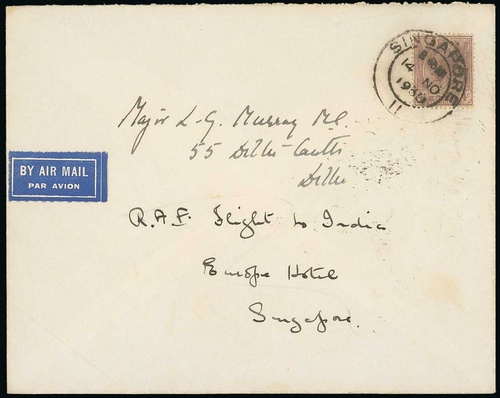 SINGAPORE
14 NO
1930
11
Major L-G. Murray M.C.
55 Delhi Cantts
Delhi
BY AIR MAIL
PAR AVION
R.A.F. Flight to India
Europe Hotel
Singapore.